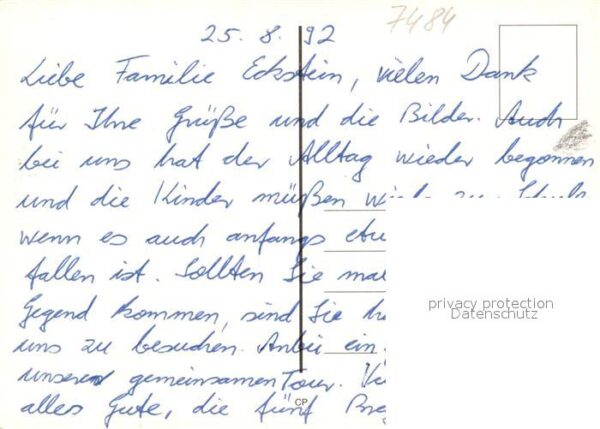 7484
25. 8. 92
Liebe Familie Eckstein, vielen Dank
für Ihre Grüße und die Bilder. Auch
bei uns hat der Alltag wieder begonnen
und die Kinder müßen
wenn es auch anfangs
fallen ist. Sollten Sie mal
Gegend kommen, sind Sie
uns zu besuchen. Anbei ein
unserer gemeinsamen Tour.
alles Gute, die fünf
CP
privacy protection
Datenschutz